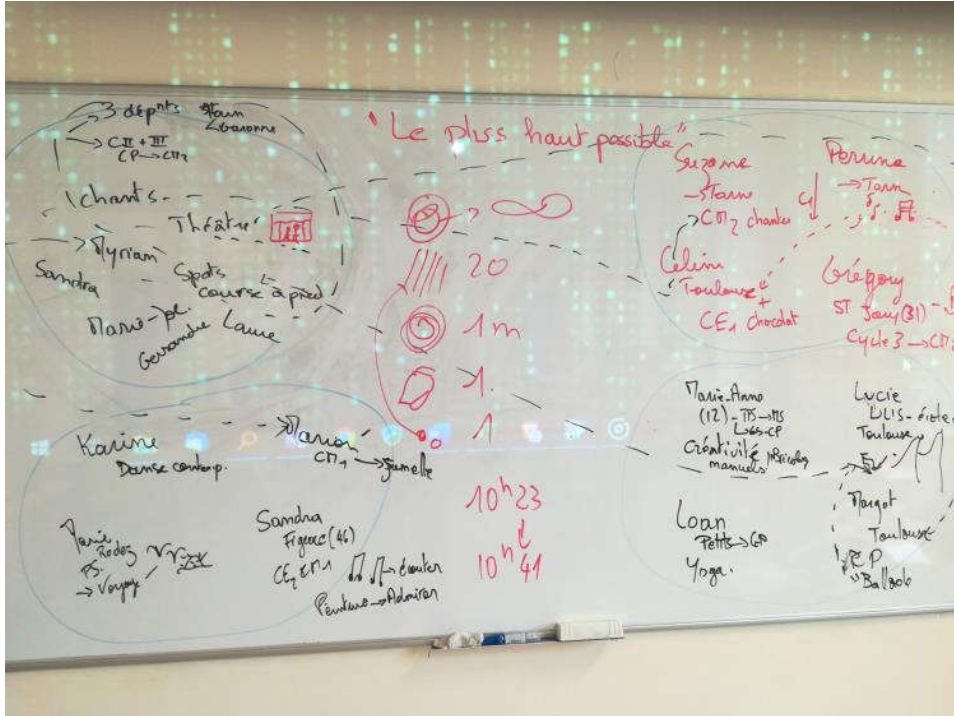 3 dépnts Tarn
Garonne
CII + III
CP → CM2
Chants
Théâtre
Myriam
Sandra
Spots
course à pied
Marie-pl.
Gersandre Laurie
"Le pluss haut possible"
∞
20
1m
1.
1
10h23
10h41
Suzanne
→ Tarn
CM2 chanter
Perrine
→ Tarn
Céline
Toulouse
+
CE1 Chocolat
Grégory
ST Jory (31)
Cycle 3 → CM2
Karine
Danse contemp.
Marion
CM1 → Jumelle
Marie
Rodez
PS.
→ Voyage
Sandra
Figeac (46)
CE2 CM1
→ écouter
Peinture → Admirer
Marie-Anne
(12) - PS → MS
GS-CP
Créativité Bricolage
manuels
Lucie
ULIS-école
Toulouse
Loan
Petits → CP
Yoga.
Margot
Toulouse
CP